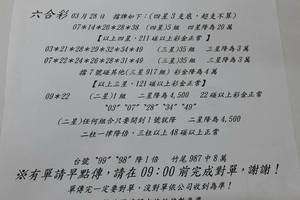 六合彩 03月28日 擋牌如下：(四星3支底，超支不算)
07*14*26*28*38 (四星)5組 四星降為20萬
【以上四星，211碰以上彩金正常】
03*21*28*29*32*34*49 (三星)35組 三星降為3萬
07*22*24*26*28*31*49 (三星)35組 三星降為3萬
擋7號碰其他(三星917組) 彩金降為4萬
【以上三星，121碰以上彩金正常】
09*22 (二星)1組 二星降為4,500 22碰以上彩金正常
"03" "07" "28" "34" "49"
(二星)任何組合只要開到1號就降 二星降為4,500
二柱一律降倍，三柱以上48碰以上正常
台號 "99" "98" 降1倍 竹尾987中8萬
※有單請早點傳，請在09：00前完成對單，謝謝！
單傳完一定要對單，沒對單依公司收到為準！